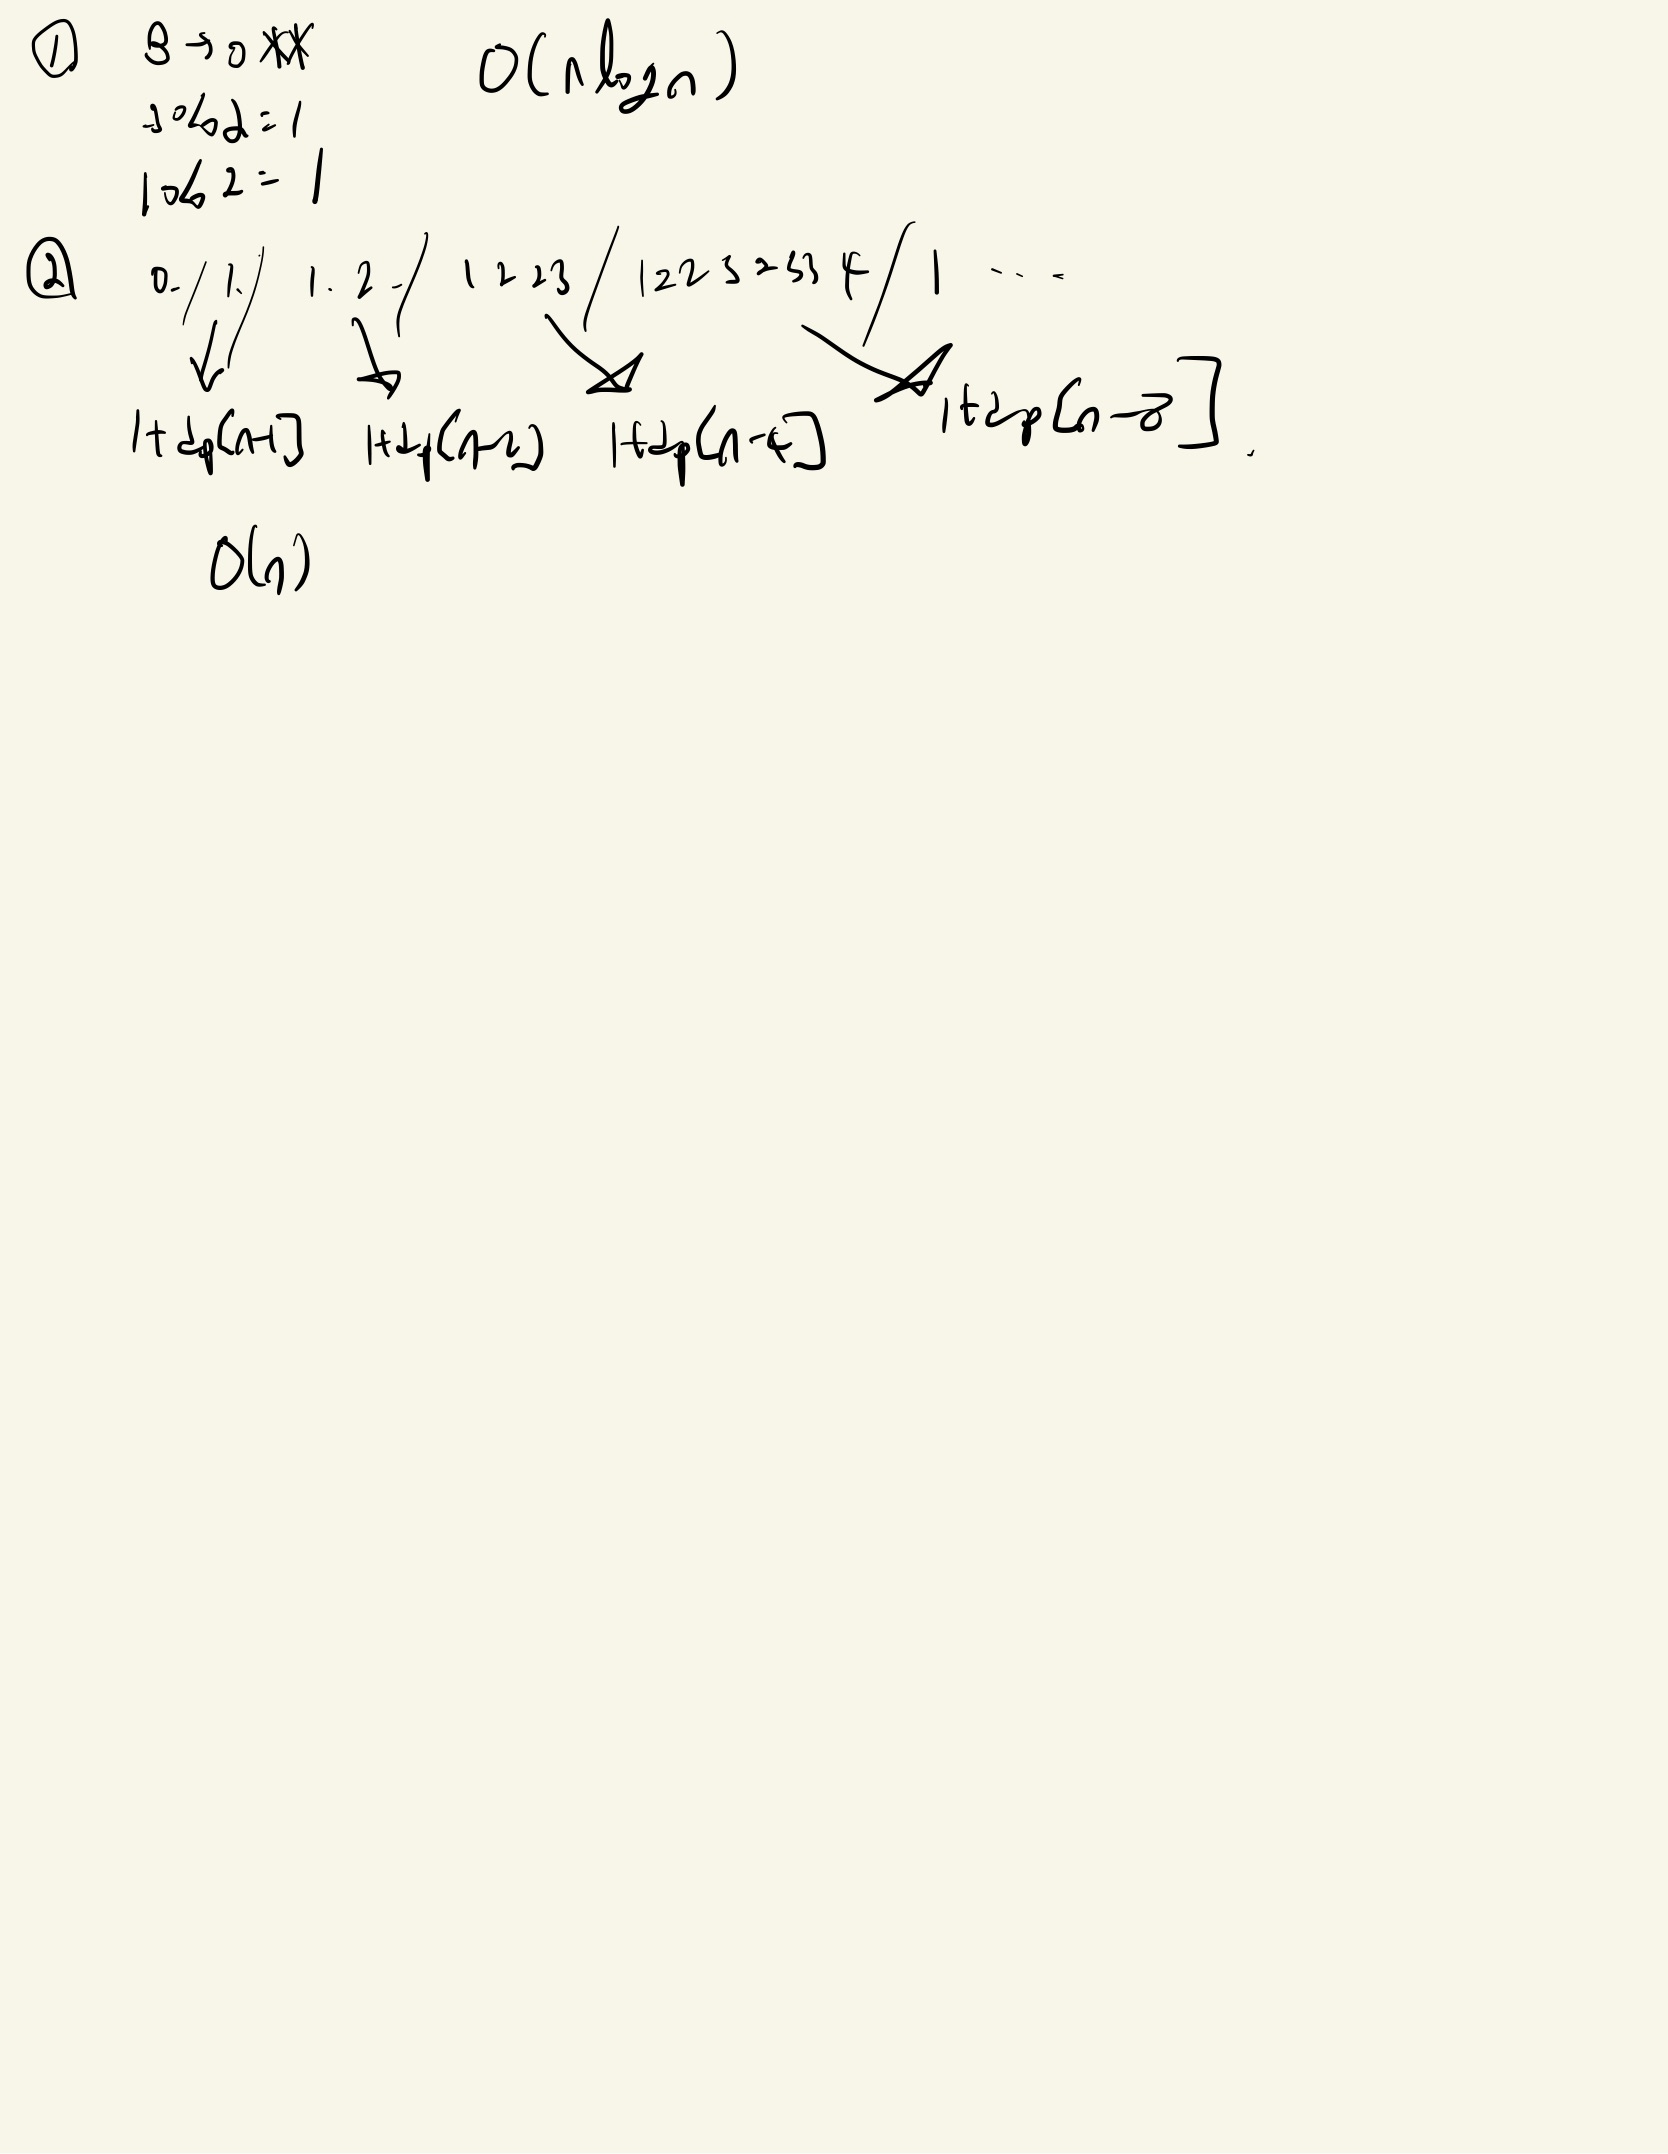 ① 3 → 0 O(n log n)
3 % 2 = 1
1 % 2 = 1
② 0. / 1. / 1. 2. / 1 2 2 3 / 1 2 2 3 2 3 3 4 / 1 ...
1+dp[n-1] 1+dp[n-2] 1+dp[n-4] 1+dp[n-8].
O(n)